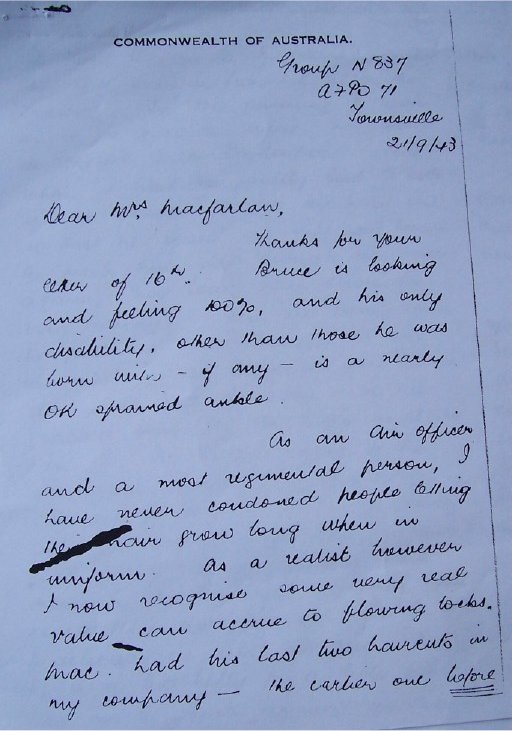 COMMONWEALTH OF AUSTRALIA.
Group N 837
AFPO 71
Townsville
21/9/43
Dear Mrs. Macfarlan,
Thanks for your
letter of 16th. Bruce is looking
and feeling 100%, and his only
disability, other than those he was
born with – if any – is a nearly
OK sprained ankle.
As an Air officer
and a most regimental person, I
have never condoned people letting
hair grow long when in
uniform. As a realist however
I now recognise some very real
value can accrue to flowing locks.
Mac. had his last two haircuts in
my company – the earlier one before